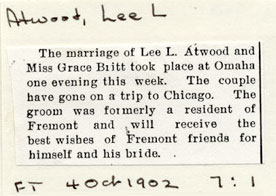 Atwood, Lee L
The marriage of Lee L. Atwood and
Miss Grace Britt took place at Omaha
one evening this week. The couple
have gone on a trip to Chicago. The
groom was formerly a resident of
Fremont and will receive the
best wishes of Fremont friends for
himself and his bride.
FT 4 Oct 1902 7:1